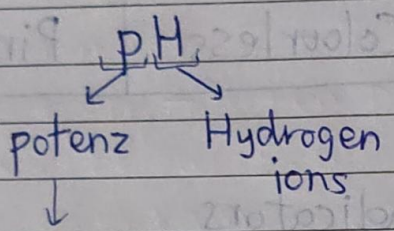 pH
potenz Hydrogen
ions